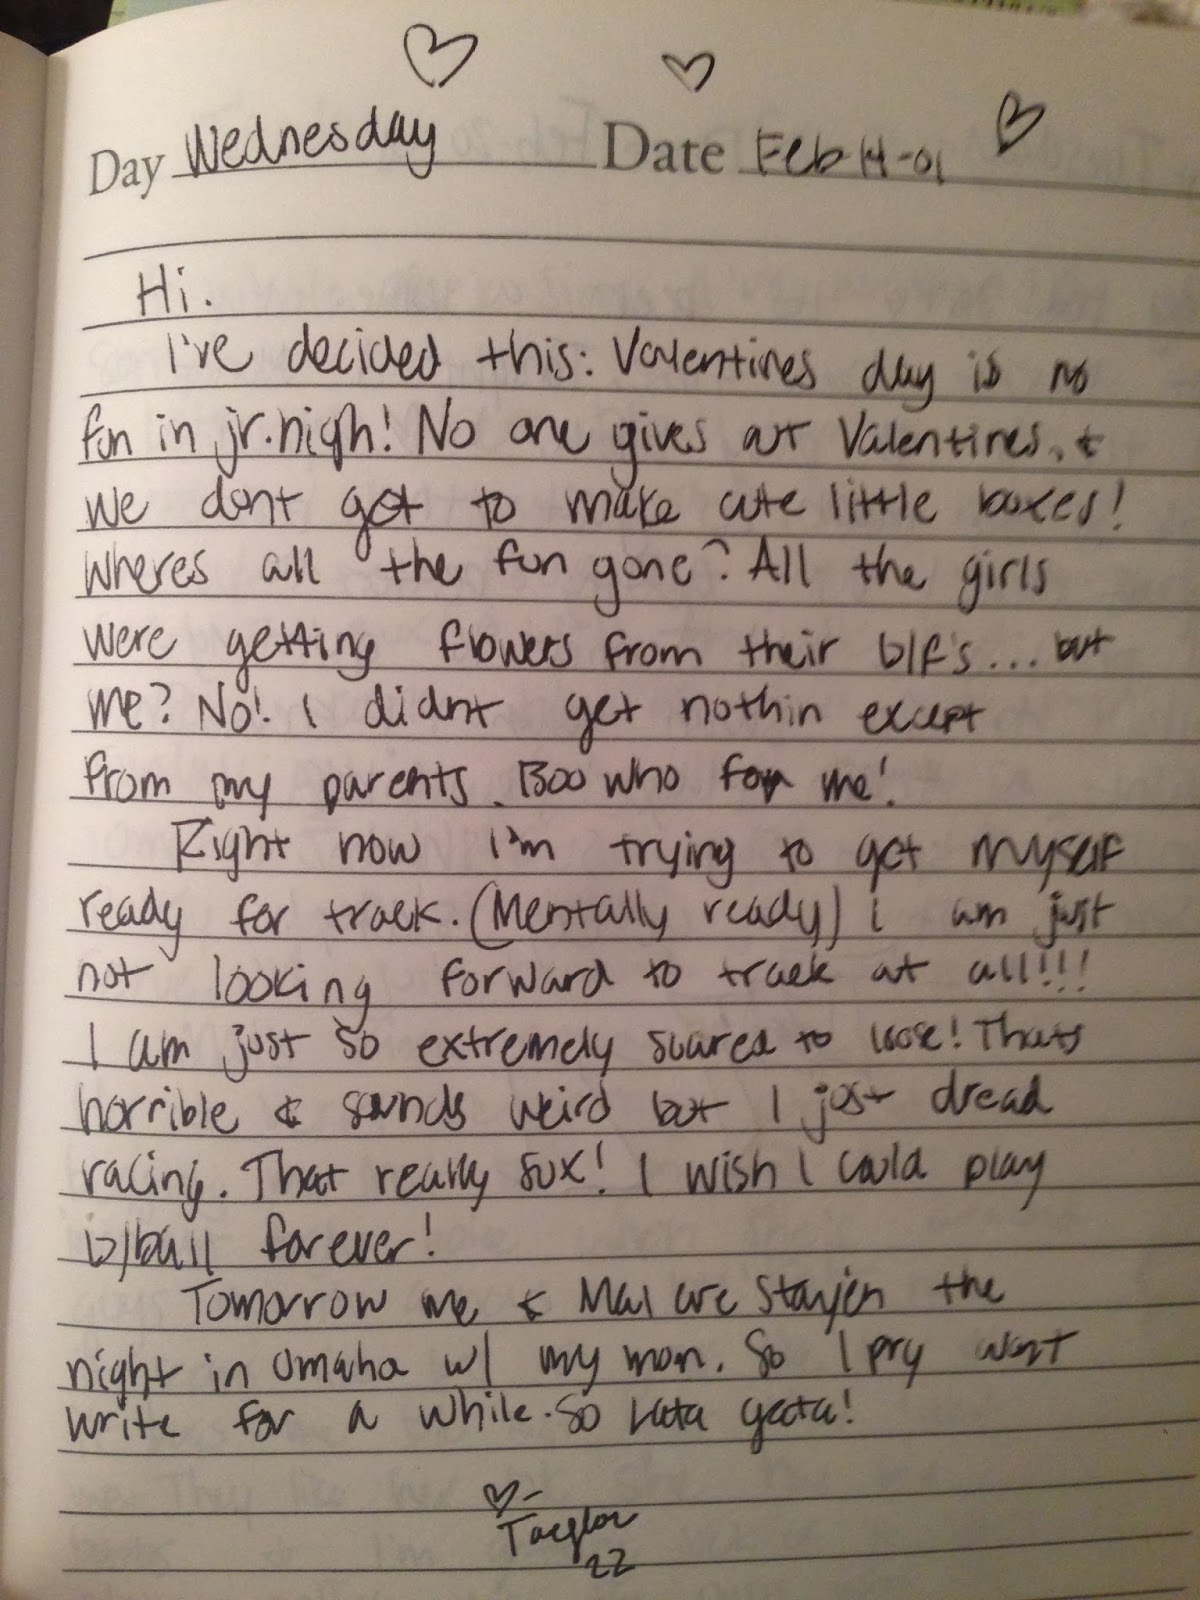 Day Wednesday Date Feb 14-01
Hi.
I've decided this: Valentines day is no
fun in jr.high! No one gives out Valentines, &
we dont get to make cute little boxes!
Wheres all the fun gone? All the girls
were getting flowers from their b/f's... but
me? No! I didnt get nothin except
from my parents. Boo who for me!
Right now I'm trying to get myself
ready for track. (Mentally ready) I am just
not looking forward to track at all!!!
I am just so extremely scared to lose! Thats
horrible & sounds weird but I just dread
racing. That really sux! I wish I could play
b/ball forever!
Tomorrow me & Mal are stayen the
night in Omaha w/ my mom. So I pry wont
write for a while. So Lata gata!
Taeylor
22